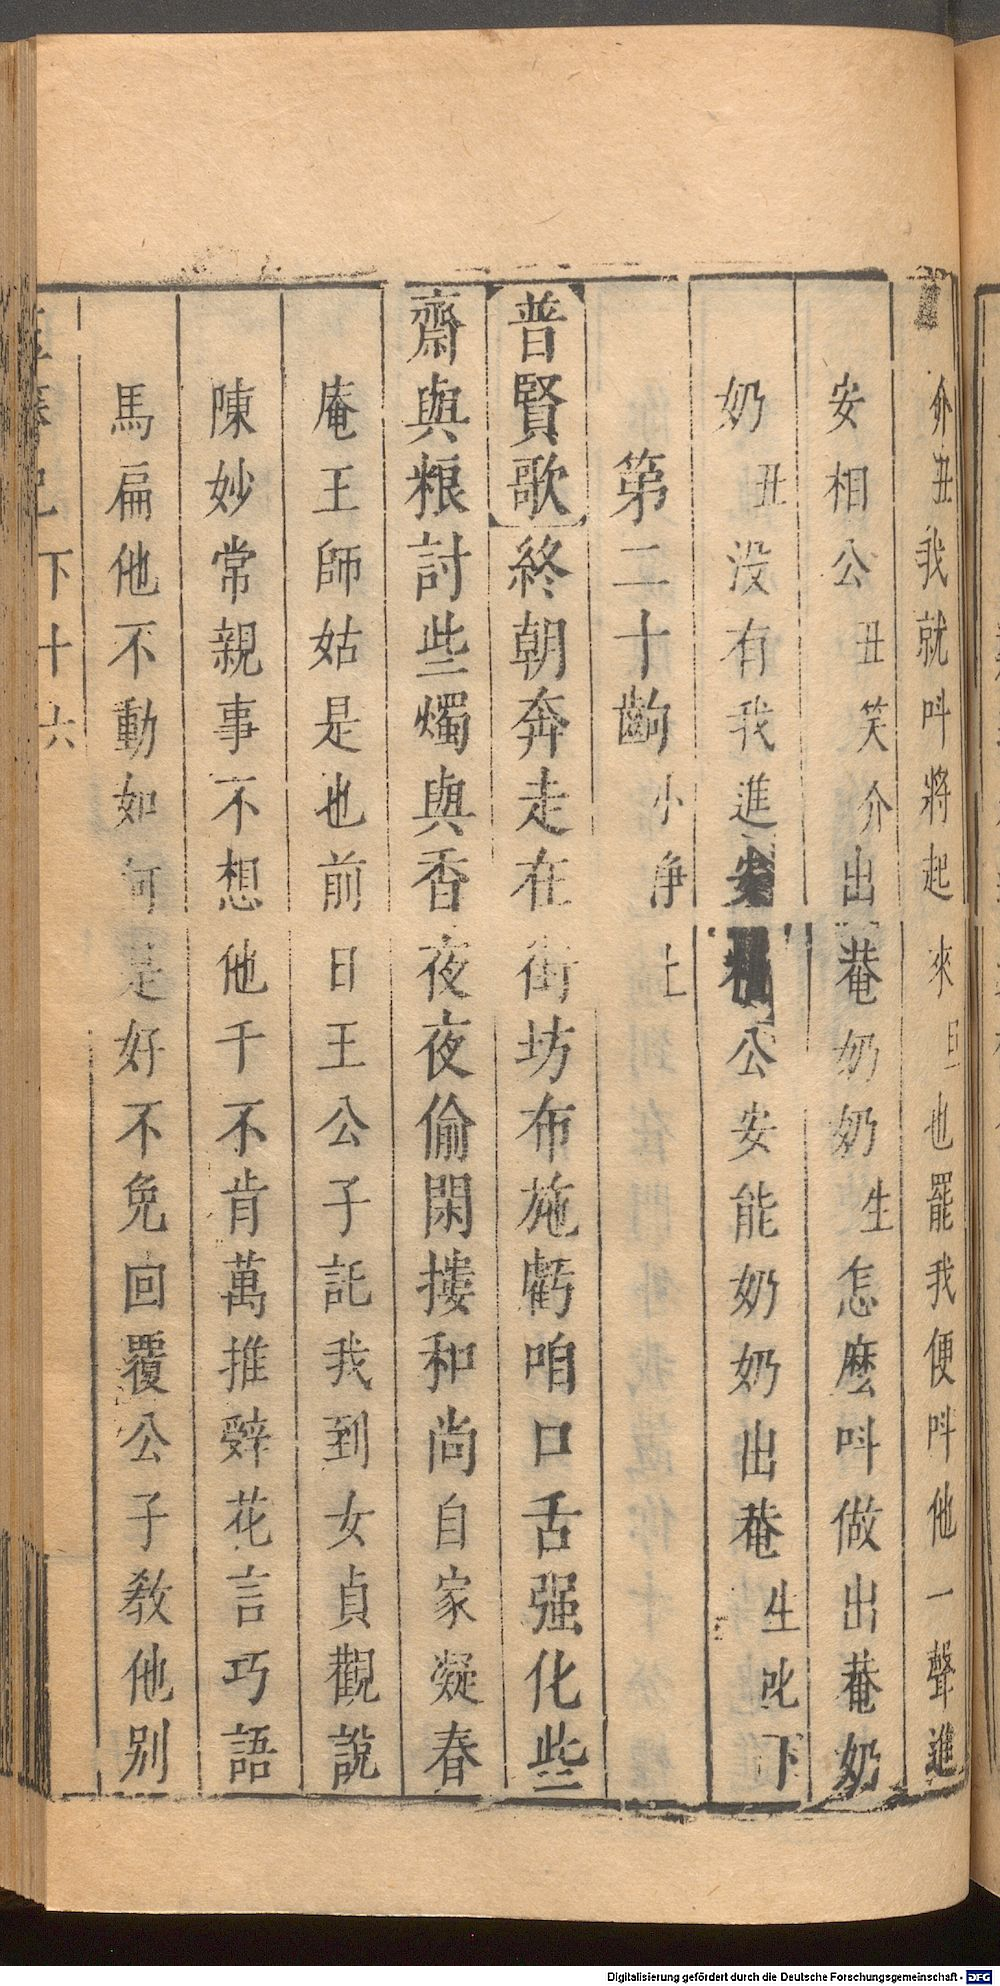 介丑我就呌將起來旦也罷我便呌他一聲進
安相公丑笑介出菴奶奶生怎麽呌做出菴奶
奶丑没有我進安相公安能奶奶出菴生叱下
第二十齣小净上
普賢歌終朝奔走在街坊布施虧咱口舌强化些
齋與粮討些燭與香夜夜偷閑摟和尚自家凝春
庵王師姑是也前日王公子託我到女貞觀說
陳妙常親事不想他千不肯萬推辤花言巧語
馬扁他不動如何是好不免回覆公子教他别
記下十六
Digitalisierung gefördert durch die Deutsche Forschungsgemeinschaft - DFG